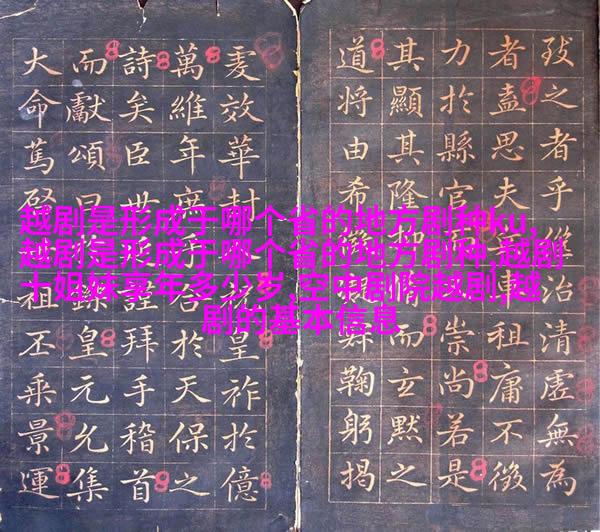 越剧是形成于哪个省的地方剧种ku,
越剧是形成于哪个省的地方剧种,越剧
十姐妹享年多少岁,空中剧院越剧,越
剧的基本信息
之者乎治清虛無為
者盍思夫租庸不徵
力於縣官而崇尚若是
其顯其隆而玄默之
道將由希鞠躬揭
效華封皇祚於億
萬維年於天保之
詩矣臣世謹拜手稽首
而獻頌曰皇元允集
大命篤祖丕乘景運